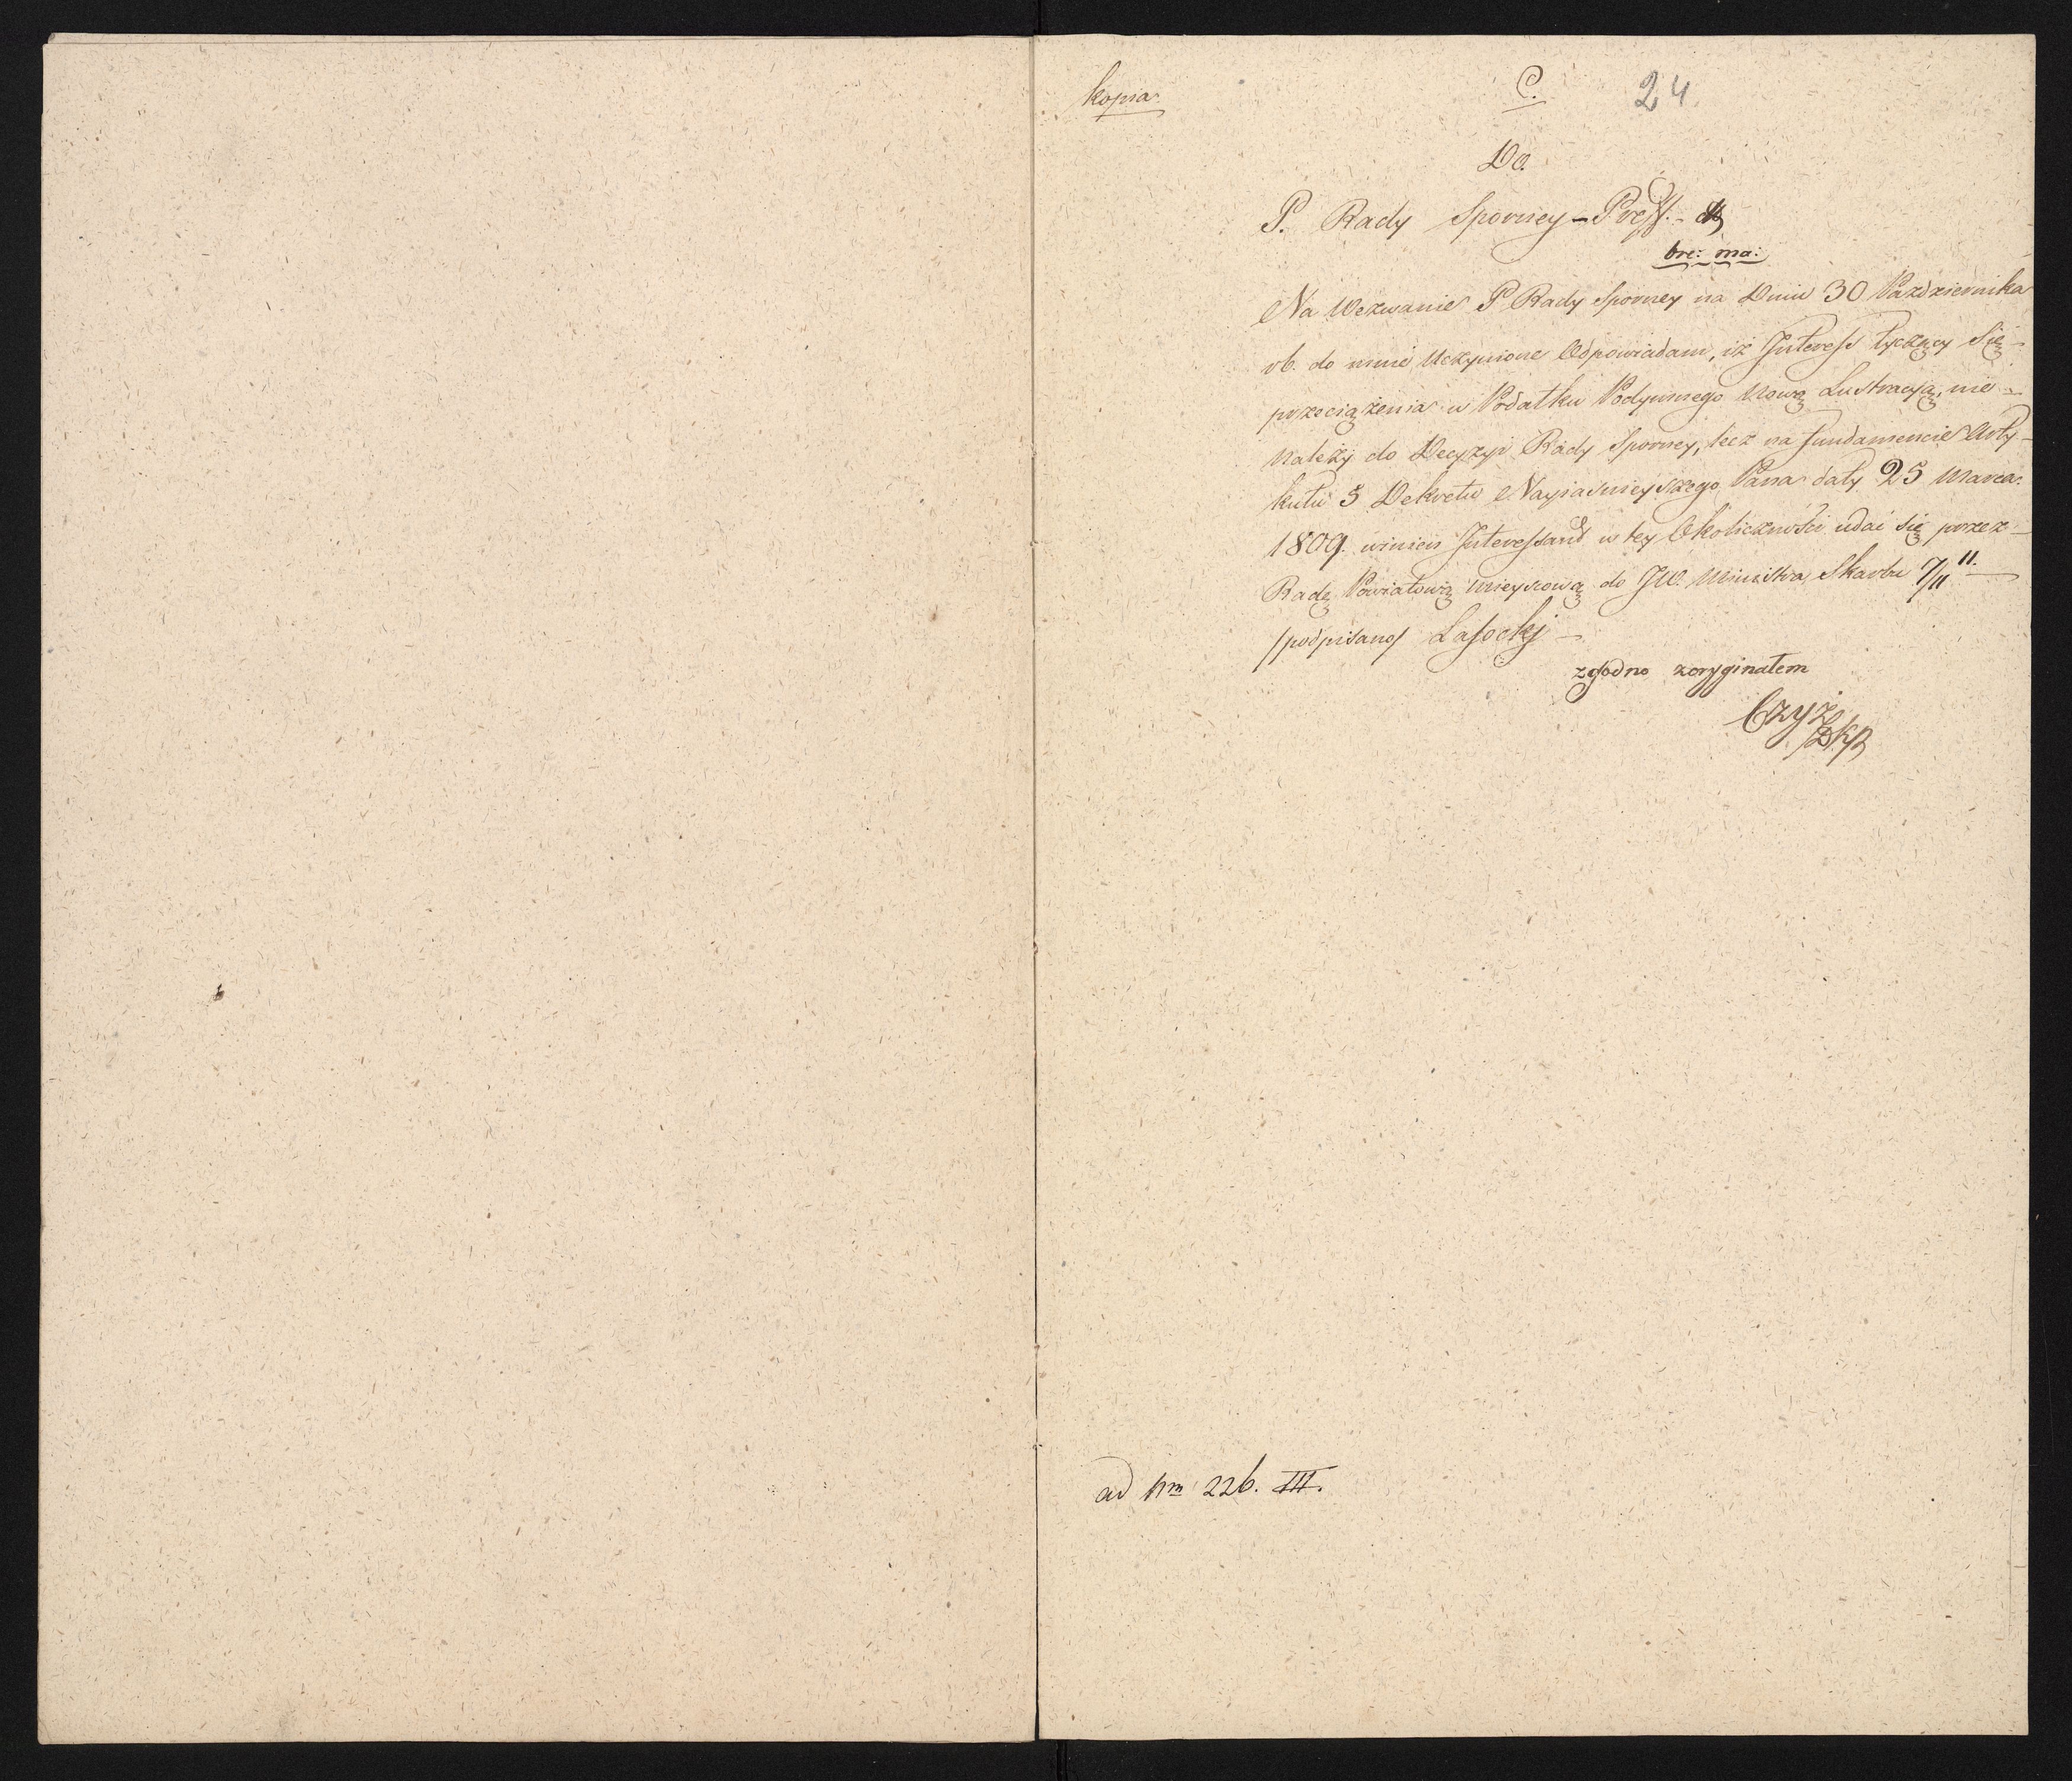 Kopia
C.
24.
Do
P. Rady Sporney - Pref.
bre: ma:
Na Wezwanie P Rady Sporney na Dniu 30 Października
rb. do mnie uczynione Odpowiadam, iż Interess tyczący Się
przeciążenia w Podatku Podymnego Nową Lustracyą, nie
należy do Decyzyi Rady Sporney, lecz na fundamencie Arty-
kułu 5 Dekretu Nayiaśnieyszego Pana daty 25 Marca
1809. winien Interessant w tey Okoliczności udać się przez
Radę Powiatową mieyscową do JW. Ministra Skarbu 7/11 11.
/podpisano/ Lasocki
zgodno zoryginałem
Czyż
ad Nrm 226. III.